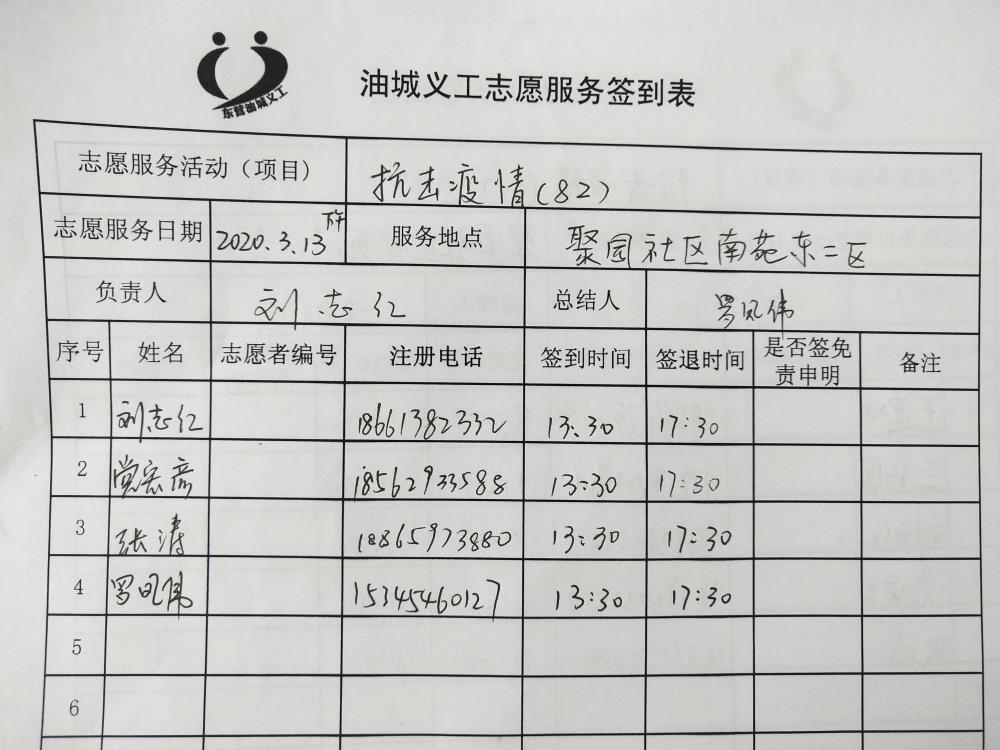 东营油城义工
油城义工志愿服务签到表
志愿服务活动（项目） 抗击疫情（82）
志愿服务日期 2020.3.13下午 服务地点 聚园社区南苑东二区
负责人 刘志红 总结人 罗凤伟
序号 姓名 志愿者编号 注册电话 签到时间 签退时间 是否签免责申明 备注
1 刘志红 18661382332 13:30 17:30
2 党宏彦 18562933588 13:30 17:30
3 张涛 18865973880 13:30 17:30
4 罗凤伟 15345460127 13:30 17:30
5
6